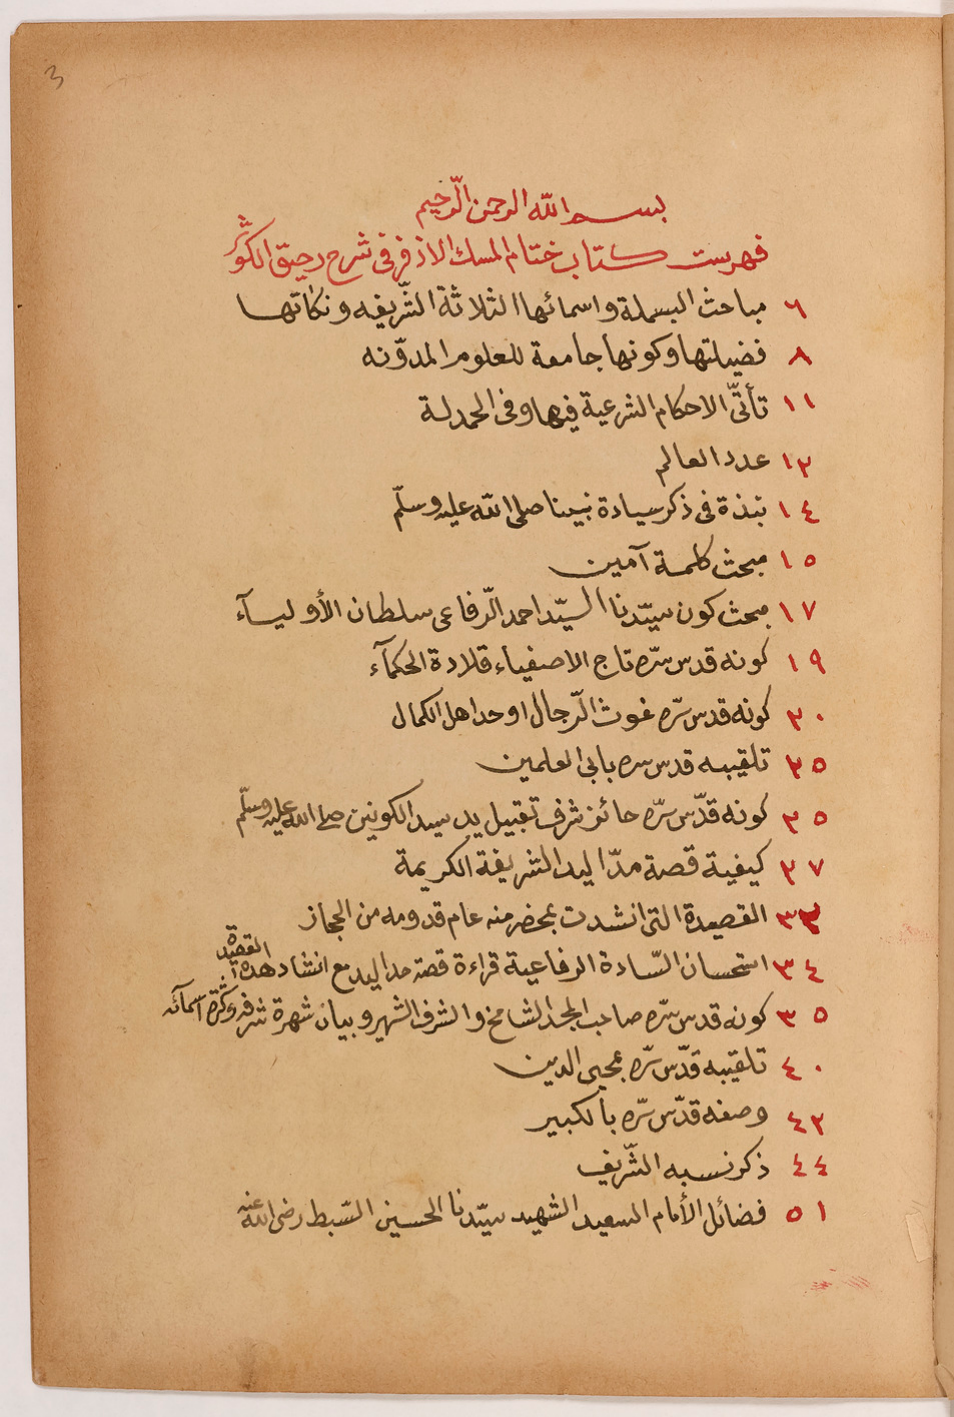 3
بسم الله الرحمن الرّحيم
فهرست كتاب ختام المسك الاذفر فى شرح رحيق الكوثر
٦ مباحث البسملة واسمائها الثلاثة الشّريفه ونكاتها
٨ فضيلتها وكونها جامعة للعلوم المدوّنه
١١ تأتّى الاحكام الشرعية فيها وفى الحمدلة
١٢ عدد العالم
١٤ نبذة فى ذكر سيادة نبينا صلى الله عليه وسلّم
١٥ مبحث كلمة آمين
١٧ مبحث كون سيّدنا السيّد احمد الرّفاعى سلطان الأوليآء
١٩ كونه قدس سرّه تاج الاصفياء قلادة الحكمآء
٢٠ كونه قدس سرّه غوث الرّجال اوحد اهل الكمال
٢٥ تلقيبه قدس سره بابى العلمين
٢٥ كونه قدّس سرّه حائز شرف تقبيل يد سيد الكونين صلى الله عليه وسلّم
٢٧ كيفية قصة مدّ اليد الشريفة الكريمة
٣٣ القصيدة التى انشدت بمحضر منه عام قدومه من الحجاز
٣٤ استحسان السّادة الرفاعية قراءة قصة مد اليد مع انشاد هذه القصيدة
٣٥ كونه قدس سرّه صاحب المجد الشامخ والشرف الشهير وبيان شهرة شرفه وكثرة اسمآئه
٤٠ تلقيبه قدّس سرّه بمحيى الدين
٤٢ وصفه قدّس سرّه بالكبير
٤٤ ذكر نسبه الشّريف
٥١ فضائل الأمام السعيد الشهيد سيّدنا الحسين السّبط رضى الله عنه